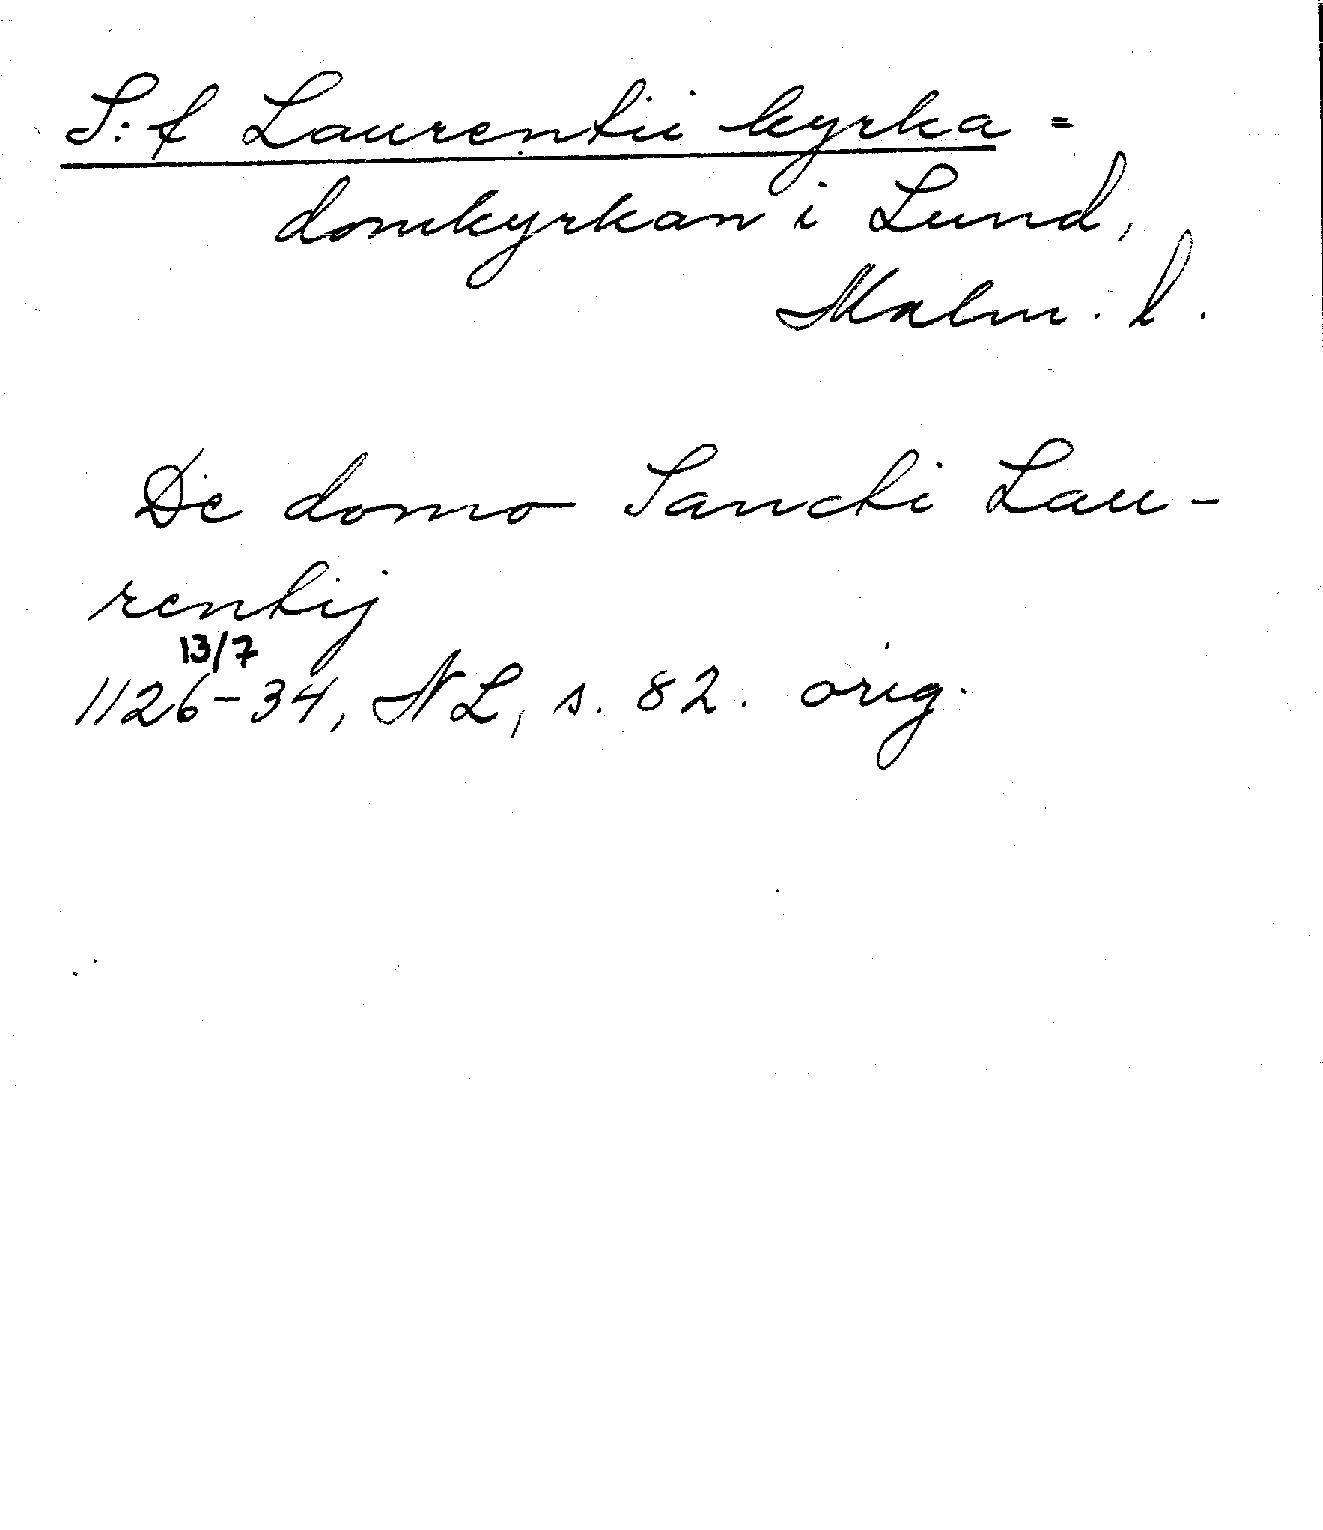 S:t Laurentii kyrka =
domkyrkan i Lund,
Malm. l.
De domo Sancti Lau-
rentij
13/7
1126-34, NL, s. 82. orig.